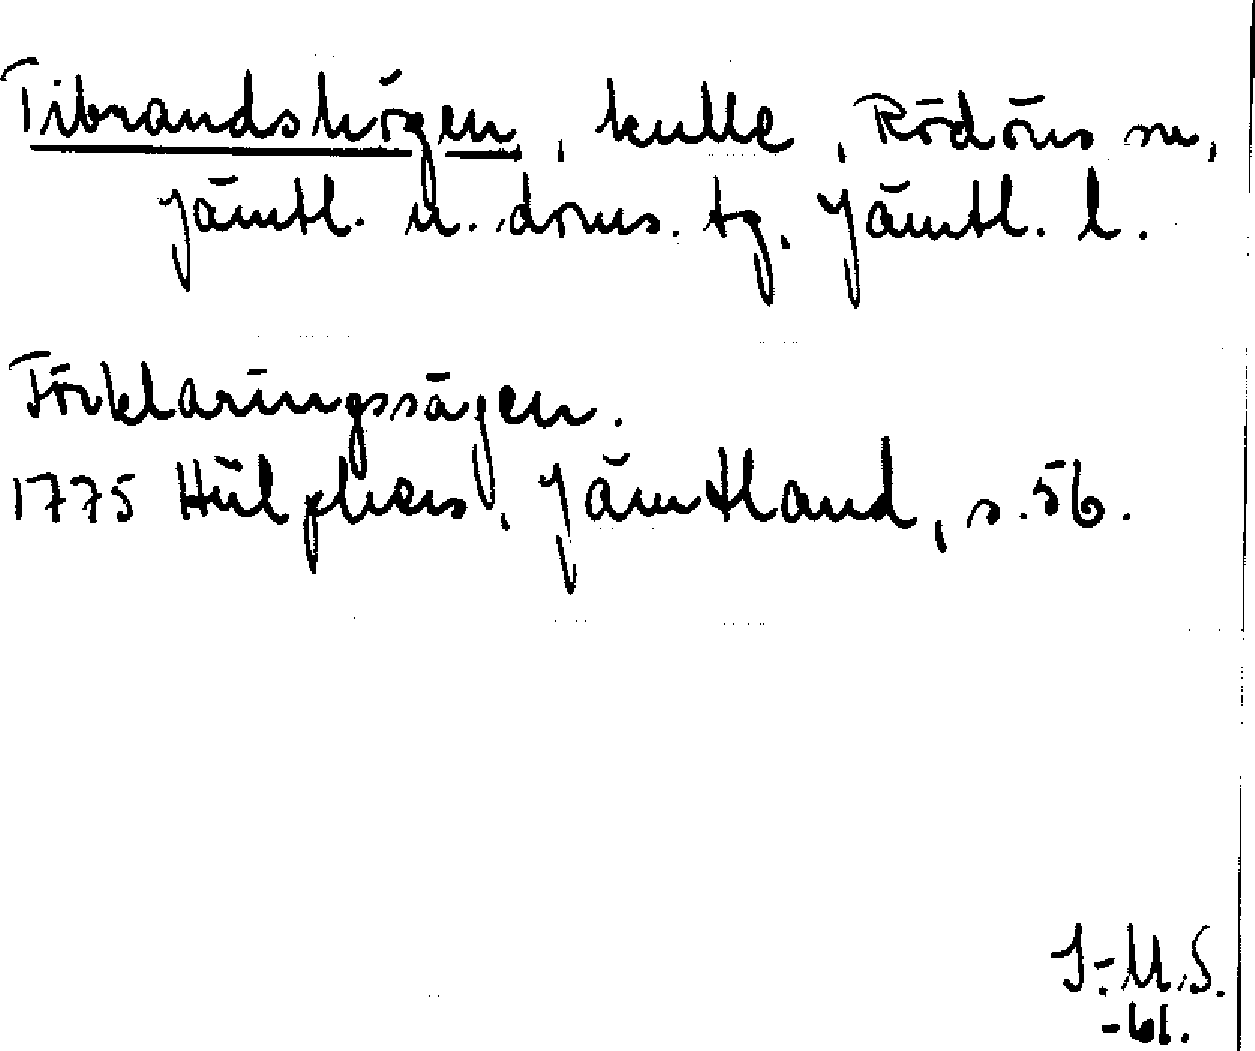 Tibrandshögen, kulle, Rödöns sn,
Jämtl. n. doms. tg. Jämtl. l.
Förklaringssägen.
1775 Hülphers, Jämtland, s. 56.
I-M.S.
-61.